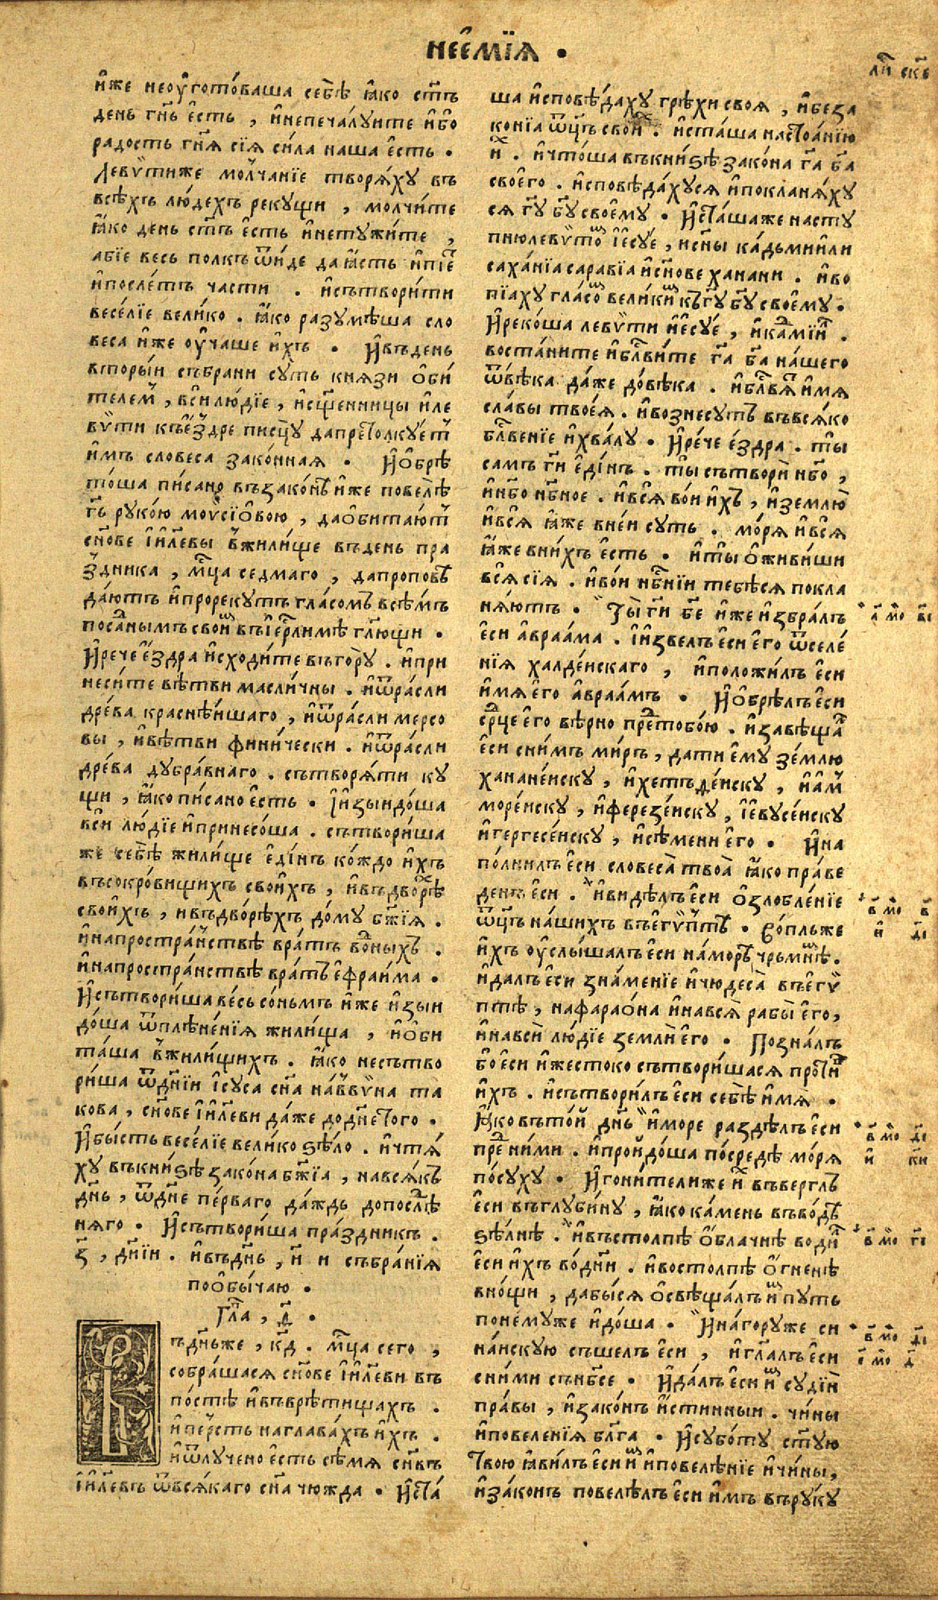 НЕЕ́МІЯ •
иже неоуготоваша себѣ ꙗко ст҃ъ
день гн҃ь есть , инепечалуите ибо
радость гн҃ѧ сіѧ сила наша есть •
Левѵтиже молчаніе творѧху въ
всѣхъ людехъ рекущи , молчите
ꙗко день ст҃ъ есть инетужите ,
абіе весь полкъ ѿиде да ꙗсть ипіе
ипослетъ части . исътворити
веселіе велико . ꙗко разумѣша сло
веса иже оучаше ихъ • Ивъдень
вторыи събрани суть кнѧзи оби
телем , вси людіе , исщ҃енницы иле
вѵти къездре писцу дапретолкует
имъ словеса законная • Иобрѣ
тоша писано възаконѣ иже повелѣ
гь рукою моѵсіовою , даобитают
сн҃ове іи҃леви вжилище въдень пра
здника , мц҃а седмаго , дапроповѣ
дают ипрорекутъ гласомъ всѣмъ
посланымъ свои въіер҃лимѣ гл҃ющи •
Ирече ездра исходите въгору . ипри
несите вѣтви масличны . иѿрасли
древа краснѣишаго , иѿрасли мерсо
вы , ивѣтви финически . иѿрасли
древа дубравнаго . сътворѧти ку
щи , ꙗко писано есть • Иизыидоша
вси людіе ипринесоша . сътвориша
же себѣ жилище единъ кождо ихъ
въсокровищихъ своихъ , ивъдворѣ
своихъ , ивъдворѣхъ дому бж҃іѧ .
инапространствѣ вратъ водныхъ .
инапространствѣ вратъ ефраима •
Исътвориша весь соньмъ иже изыи
доша ѿпленениѧ жилища , иоби
таша вжилищихъ . ꙗко несътво
риша ѿдніи ісуса сн҃а наввѵна та
кова , сн҃ове іи҃леви даже доднетого •
Ибысть веселіе велико ѕѣло . ичтѧ
ху въкниѕѣ закона бж҃іа , навсѧкъ
дн҃ь , ѿдн҃е перваго даждь допослѣ
нѧго • Исътвориша праздникъ .
з҃ , дн҃іи . ивъдн҃ь , и҃ и събраніѧ
пообычаю •
Гла҃ , д҃ •
В
ъдн҃ьже , кд҃ . мц҃а сего ,
собрашасѧ сн҃ове іи҃леви въ
постѣ ивъврѣтищахъ .
иперсть наглавахъ ихъ .
иѿлучено есть сѣмѧ сн҃въ
іи҃левъ ѿвсѧкаго сн҃а чюжда • Иста
ша исповѣдаху грѣхи своѧ , ибеза
коніа ѿц҃ъ свои . исташа настоѧнію
и . ичтоша въкниѕѣ закона га҃ ба҃
своего . исповѣдахусѧ ипокланѧху
сѧ гу҃ бу҃ своему • Исташаже насту
пнюлевѵто іесуе , исн҃ы кадьмиили
саханіа сарабіа исн҃ове ханани . ико
піаху гласо велики къгу҃ бу҃ своему •
Ирекоша левѵти иесуе , икадміил .
востаните иблг҃вите га҃ ба҃ нашего
ѿвѣка даже довѣка . иблг҃вѧ имѧ
славы твоеѧ . ивознесутъ въвсѧко
блг҃веніе ихвалу • Ирече ездра . ты
самъ ги҃ единъ . ты сътвори нб҃о ,
инб҃о нб҃ное . ивсѧ вои ихъ , иземлю
ивсѧ ꙗже внеи суть . морѧ ивсѧ
ꙗже внихъ есть • иты оживиши
всѧ сіѧ . ивои нб҃ніи тебѣсѧ покла
нѧютъ • Ты ги҃ бе҃ иже избралъ
еси авраама . иизвелъ еси его ѿселе
ніѧ халденскаго , иположилъ еси
имѧ его авраамъ • Иобрѣлъ еси
срц҃е его вѣрно предтобою . изавѣща
еси снимъ миръ , дати ему землю
хананеиску , ихетъдеиску , иам
мореиску , иферезеиску , іевусеиску
игергесеиску , исѣмени его • Ина
полнилъ еси словеса твоа ꙗко праве
денъ еси . ивидѣлъ еси озлобленіе
ѿц҃ъ нашихъ въегѵптѣ • Вопльже
ихъ оуслышалъ еси наморѣ чръмнѣ .
идалъ еси знаменіе ичюдеса въегѵ
птѣ , нафараона инавсѧ рабы его ,
инавси людіе земли его • Позналъ
бо еси ижестоко сътворишасѧ проти
ихъ . исътворилъ еси себѣ имѧ •
Ꙗко вътои дн҃ь иморе раздѣлъ еси
пред ними . ипроидоша посредѣ морѧ
посуху • Игонителиже и въвергль
еси въглубину , ꙗко камень въводѣ
ѕѣлнѣ . ивъстолпѣ облачнѣ води
еси ихъ водни . ивостолпѣ огненѣ
внощи , дабысѧ освѣщалъ и путь
понемуже идоша • Инагоруже си
наискую съшелъ еси , игл҃алъ еси
сними сънб҃се • Идалъ еси и судіи
правы , изаконъ истинныи . чины
иповеленіѧ блг҃а • Исуботу ст҃ую
твою ꙗвилъ еси и иповелѣніе ичины ,
изаконъ повелѣлъ еси имъ въруку
а҃ мо в҃і
в҃ мо
в҃ мо д҃і
и к҃и
в҃ мо г҃і
в҃ мо д҃і
і҃ мо д҃